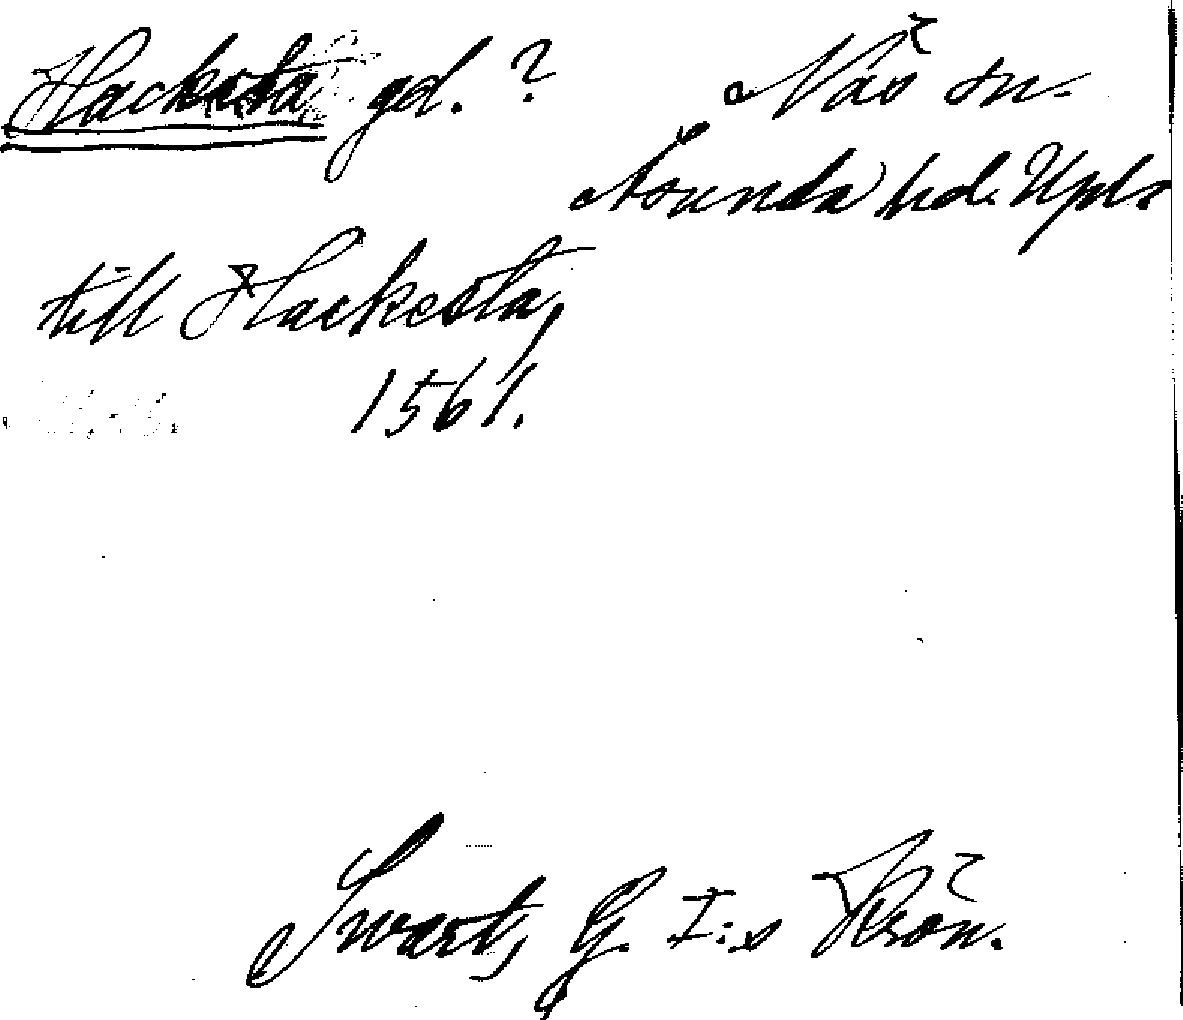 Hackesta gd. ? Näs sn.
Åsunda hd. Upl.
till Hackesta,
1561.
Swart, G. I:s Krön.